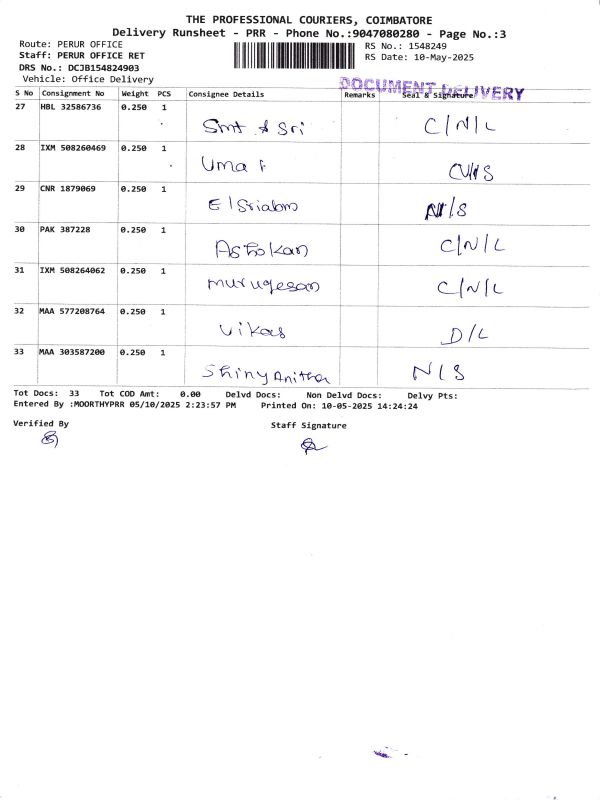 THE PROFESSIONAL COURIERS, COIMBATORE
Delivery Runsheet - PRR - Phone No.:9047080280 - Page No.:3
Route: PERUR OFFICE
Staff: PERUR OFFICE RET
DRS No.: DCJB154824903
Vehicle: Office Delivery
RS No.: 1548249
RS Date: 10-May-2025
DOCUMENT DELIVERY
S No Consignment No Weight PCS Consignee Details Remarks Seal & Signature
27 HBL 32586736 0.250 1 Smt & Sri C/N/L
28 IXM 508260469 0.250 1 Uma
29 CNR 1879069 0.250 1 N/S
30 PAK 387228 0.250 1 Ashokan C/N/L
31 IXM 508264062 0.250 1 murugesan C/N/L
32 MAA 577208764 0.250 1 Vikas D/L
33 MAA 303587200 0.250 1 Shiny Anitha N/S
Tot Docs: 33 Tot COD Amt: 0.00 Delvd Docs: Non Delvd Docs: Delvy Pts:
Entered By :MOORTHYPRR 05/10/2025 2:23:57 PM Printed On: 10-05-2025 14:24:24
Verified By Staff Signature